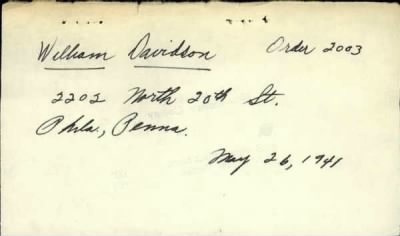 William Davidson Order 2003
2202 North 20th St.
Phila, Penna.
May 26, 1941